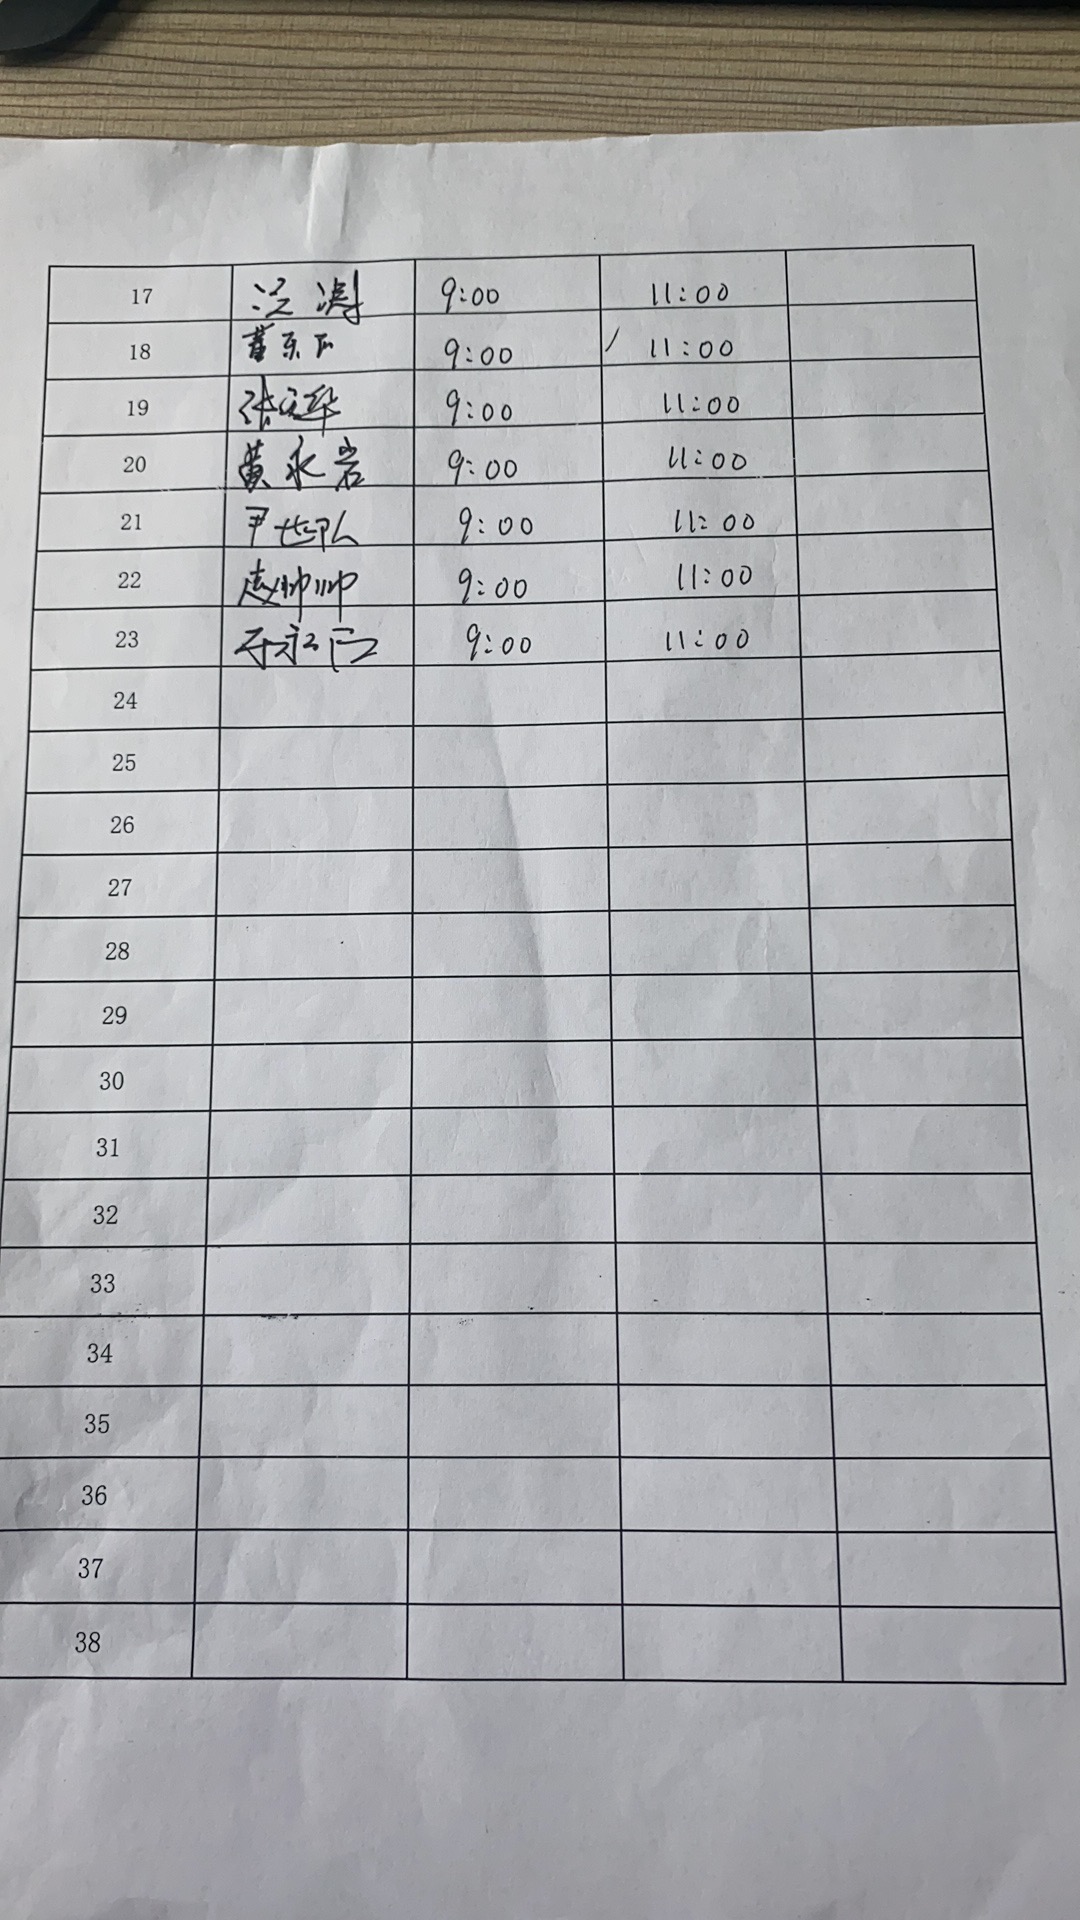 17 汪涛 9:00 11:00
18 9:00 11:00
19 张文华 9:00 11:00
20 黄永岩 9:00 11:00
21 尹世弘 9:00 11:00
22 赵帅帅 9:00 11:00
23 9:00 11:00
24
25
26
27
28
29
30
31
32
33
34
35
36
37
38